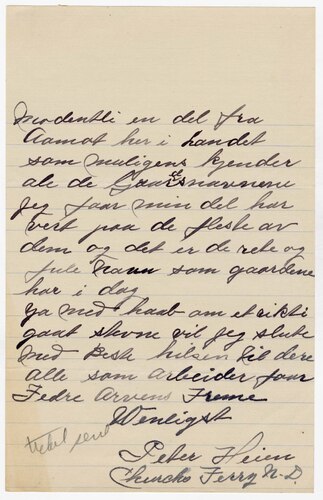 Modentli en del fra
Aamot her i landet
som muligens kjender
ale de Gaardsnavnene
jeg faar min del har
vert paa de fleste av
dem og det er de rete og
fule Navn som gaardene
har i dag
Ja med haab om et rikti
gaat skvne vil jeg slute
med Beste hilsen til dere
alle som arbeider faar
Fedre Arvens Freme
Wenligst
Peter Heien
Churchs Ferry N-D.